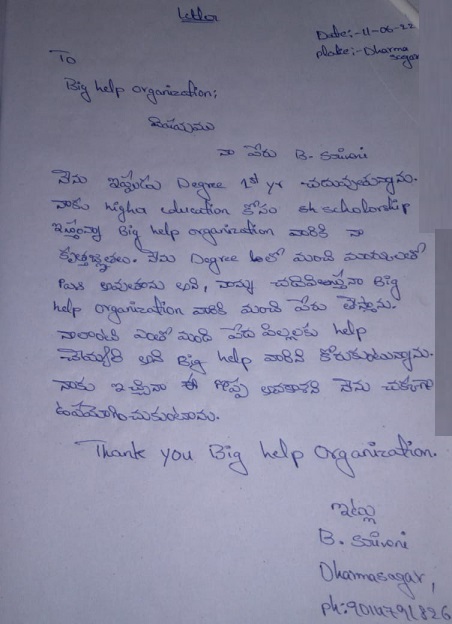 Letter
Date:-11-06-22
place:- Dharma
sagar
To
Big help organization;
విషయము
నా పేరు B.
నేను ఇప్పుడు Degree 1st yr చదువుతున్నాను.
నాకు higher education కోసం sh scholorship
ఇస్తున్న Big help organization వారికి నా
కృతజ్ఞతలు. నేను Degree లో మంచి మార్కులతో
Pass అవుతాను అని, నన్ను చదివిస్తున్న Big
help Organization వారికి మంచి పేరు తెస్తాను.
నాలాంటి ఎంతో మంది పేద పిల్లలకు help
చెయ్యాలి అని Big help వారిని కోరుకుంటున్నాను.
నాకు ఇచ్చిన ఈ గొప్ప అవకాశని నేను చక్కగా
ఉపయోగించుకుంటాను.
Thank you Big help Organization.
ఇట్లు
B.
Dharmasagar,